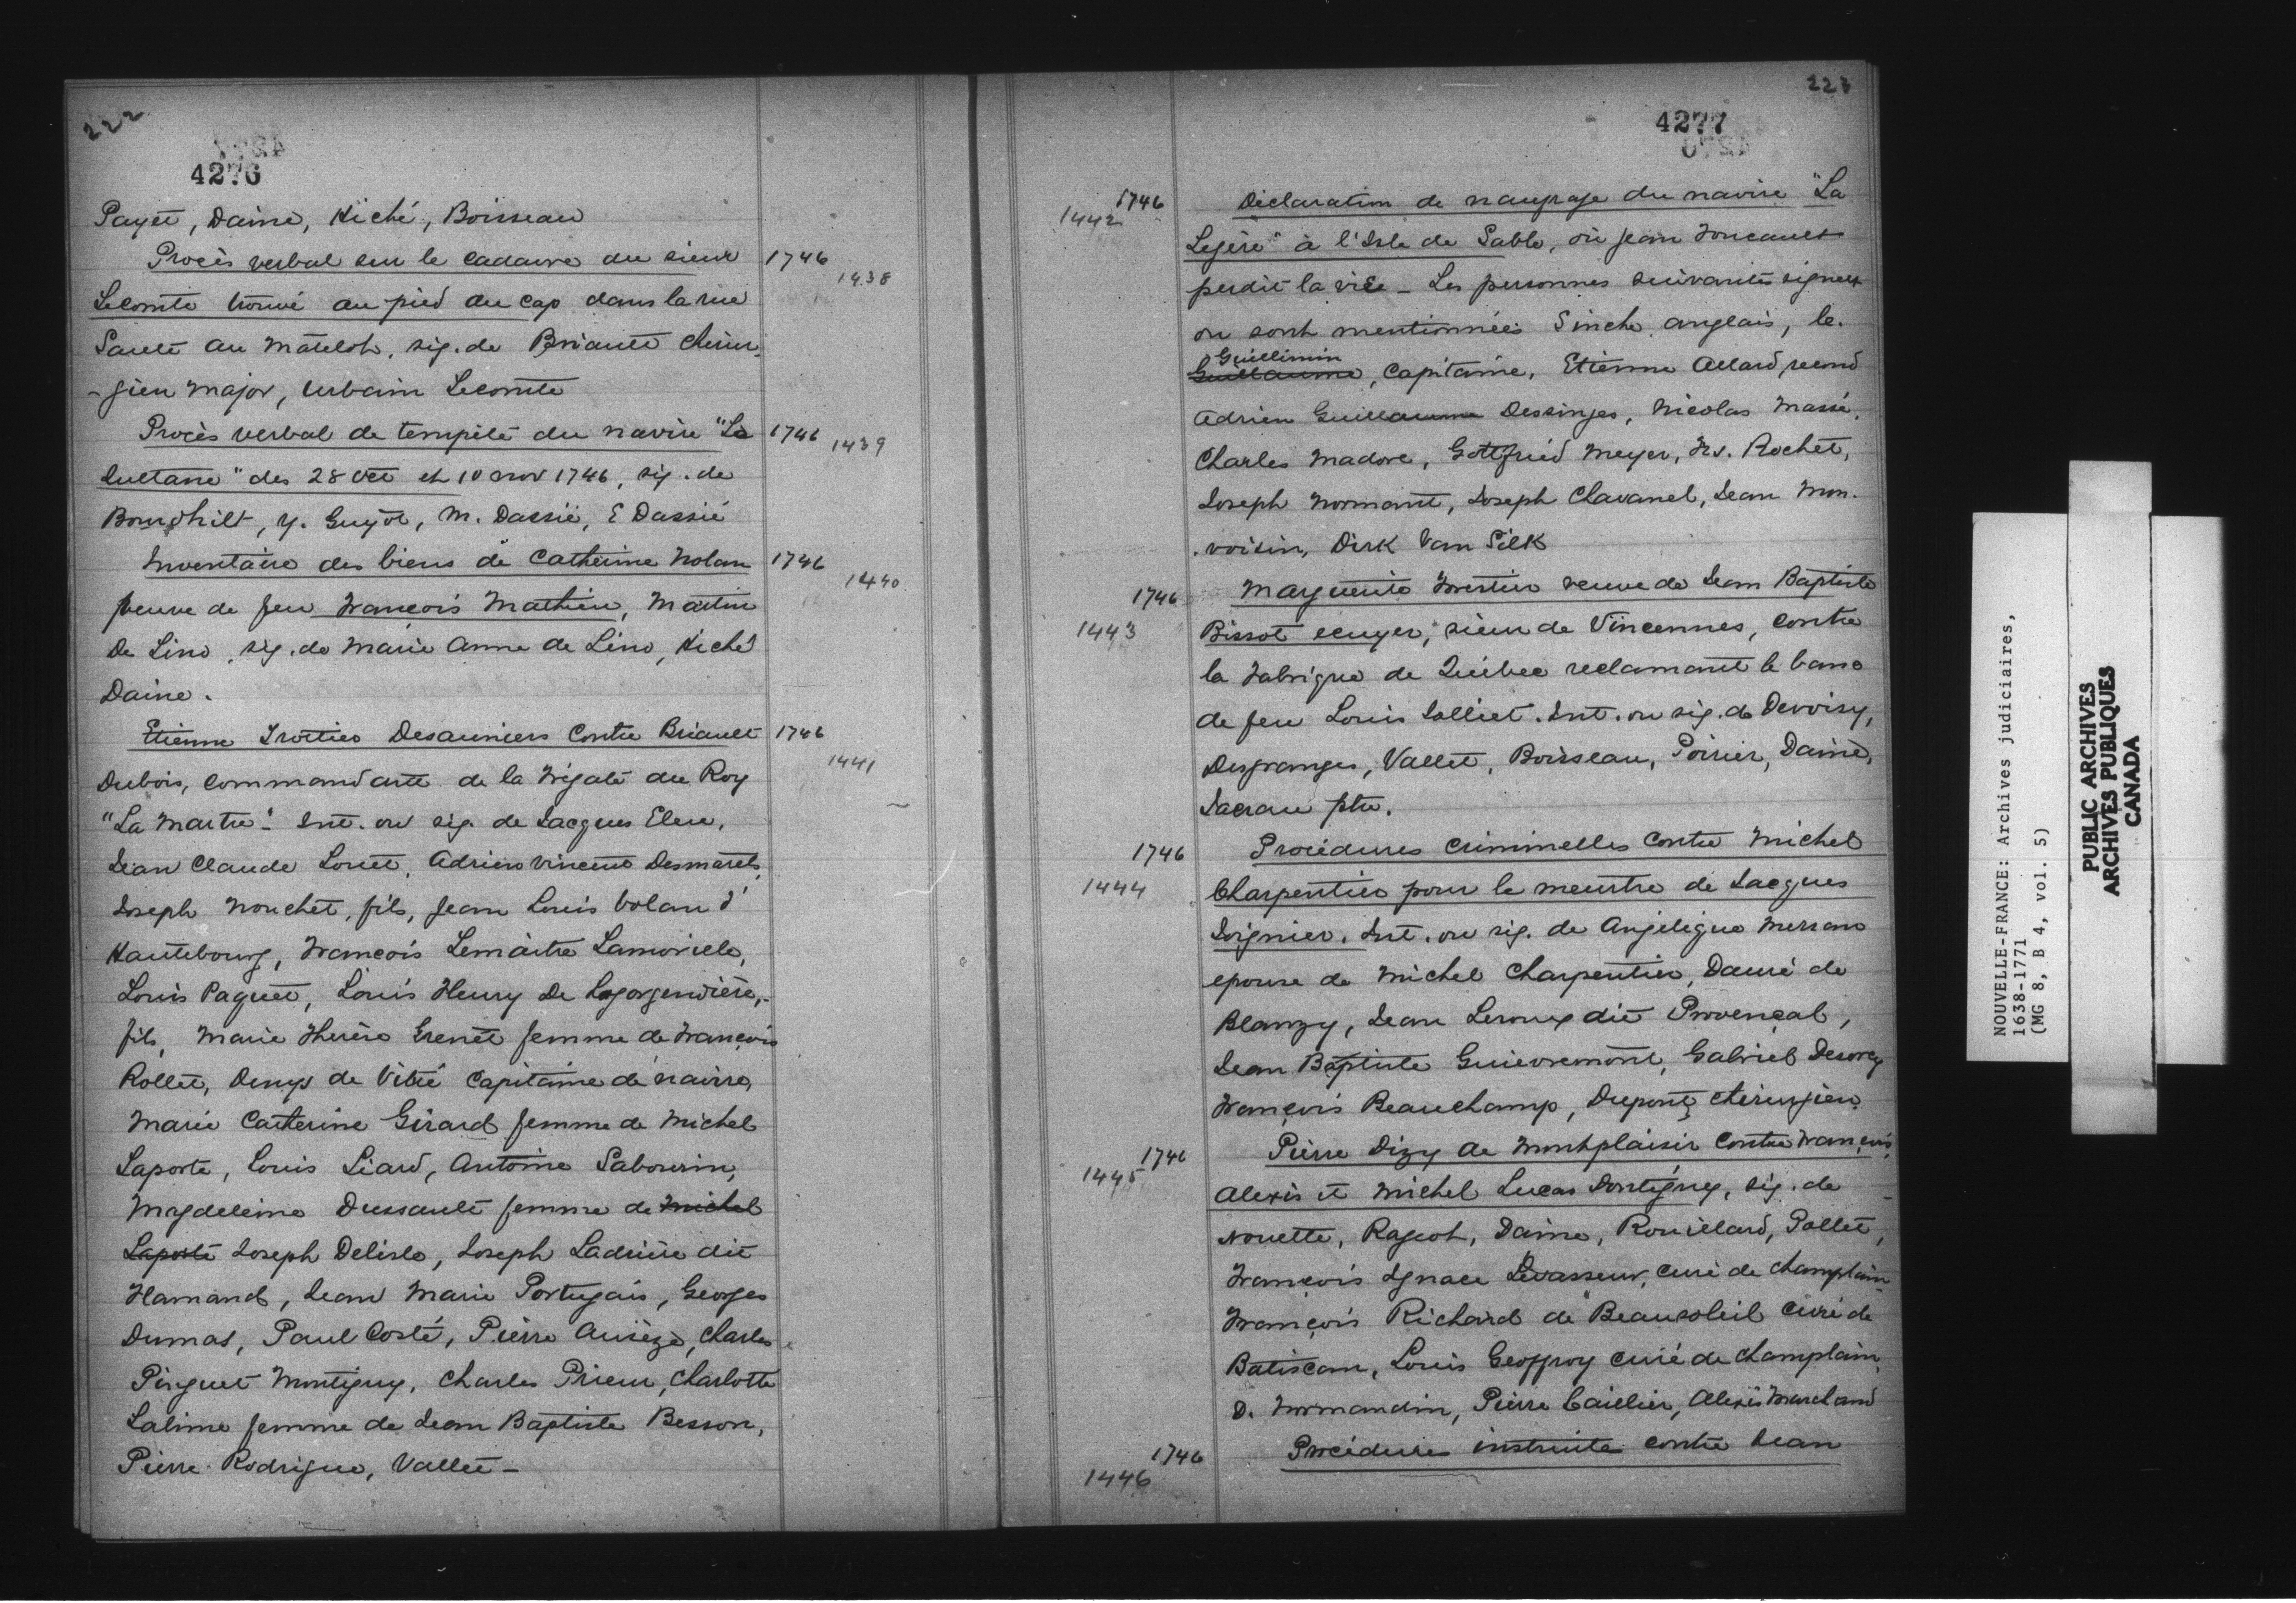 222
4276
Payet, Daine, Hiché, Boisseau
Procès verbal sur le cadavre du sieur 1746 1438
Lecomte trouvé au pied du cap dans la rue
Sault au Matelot, sig. de Briault chirur-
-gien major, Urbain Lecomte
Procès verbal de tempête du navire "La 1746 1439
Sultane" des 28 oct et 10 nov 1746, sig. de
y. Guyot, M. Dassié, E Dassié
Inventaire des biens de Catherine Nolan 1746 1440
veuve de feu François Mathieu, Martin
De Lino, sig. de Marie Anne de Lino, Hiché
Daine.
Etienne Trottier Desauniers contre Briault 1746 1441
Dubois, commandant de la frégate du Roy
"La Martre". Int. ou sig. de Jacques Eleu,
Jean Claude Louet, Adrien Vincent Desmarets,
Joseph Nouchet, fils, Jean Louis Volant d'
Hautebourg, François Lemaître Lamorille,
Louis Paquet, Louis Henry De Lagorgendière,
fils, Marie Therèse Grenet femme de François
Rollet, Denys de Vitré Capitaine de navire,
Marie Catherine Girard femme de Michel
Laporte, Louis Liard, Antoine Sabourin,
Magdeleine Dussault femme de Michel
Laporte Joseph Delisle, Joseph Ladrière dit
Flamand, Jean Marie Portugais, Georges
Dumas, Paul Costé, Pierre Ausèze, Charles
Pinguet Montigny, Charles Prieur, Charlotte
Lalime femme de Jean Baptiste Besson,
Pierre Rodrigue, Vallet -
223
4277
1746 1442 Déclaration de naufrage du navire "La
Legère" à l'Isle de Sable, où Jean Foucault
perdit la vie - Les personnes suivantes signent
ou sont mentionnées Sinche anglais, le.
Guillimin
Guillaume, Capitaine, Etienne Allard, second
Adrien Guillaume Dessinges, Nicolas Massé,
Charles Madore, Gottfried Meyer, Frs. Rochet,
Joseph Normant, Joseph Chavanel, Jean Mon.
.voisin, Dirk Van Silk
1746 1443 Marguerite Forestier veuve de Jean Baptiste
Bissot ecuyer, sieur de Vincennes, contre
la Fabrique de Québec reclamant le banc
de feu Louis Jolliet. Int. ou sig. de Devoisy,
Desgranges, Vallet, Boisseau, Poirier, Daine,
Jacrau ptre.
1746 1444 Procédures criminelles contre Michel
Charpentier pour le meurtre de Jacques
Soignier. Int. ou sig. de Angelique Mersan
epouse de Michel Charpentier, Dauré de
Blanzy, Jean Leroux dit Provençal,
Jean Baptiste Guievremont, Gabriel Desorcy
François Beauchamp, Dupont chirurgien.
1746 1445 Pierre Dizy de Montplaisir contre François,
Alexis et Michel Lucas Dontigny, sig. de
Nouette, Rageot, Daine, Rouillard, Pollet,
François Ignace Levasseur, curé de Champlain
François Richard de Beausoleil curé de
Batiscan, Louis Geoffroy curé de Champlain,
D. Normandin, Pierre Caillier, Alexis Marchand
1746 1446 Procédures instruite contre Jean
NOUVELLE-FRANCE: Archives judiciaires,
1638-1771
(MG 8, B 4, vol. 5)
PUBLIC ARCHIVES
ARCHIVES PUBLIQUES
CANADA